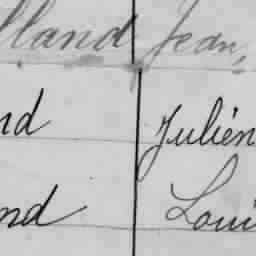 lland Jean,
nd Julien
nd Loui